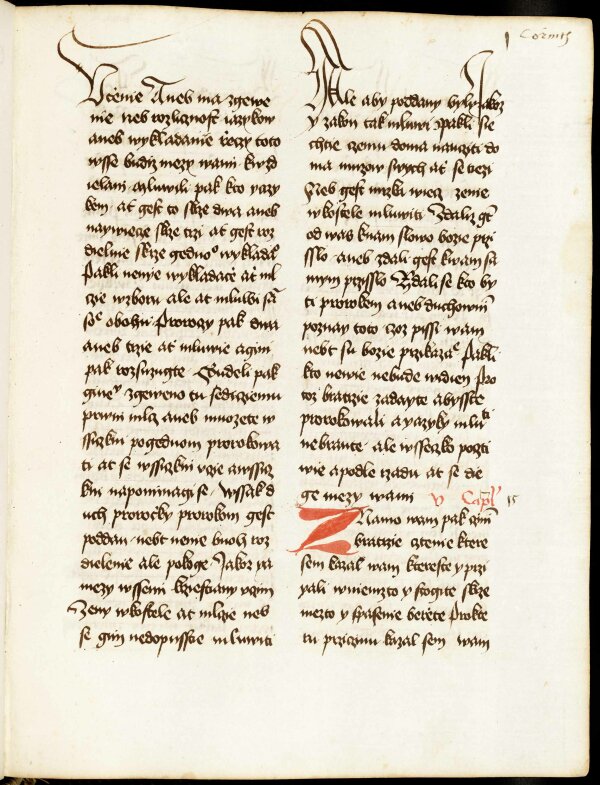 Corint̄h
Vcżenie Aneb ma zgewe
nie neb rozlicznost iazykow
aneb wykladanie rzeczy toto
wsse budiz mezy wami kwzd
ielani mluwili pak kto yazy
kem at gest to skrze dwa aneb
naywiecze skrze trzi at gest roz
dielnie skrze gednoº wykladal
Pakli nenie wykladacze at ml
czie wzboru ale at mluwi sā
soᵉ obohu Prorocy pak dwa
aneb trzie at mluwie a gini
pak rozsuzugte Budeli pak
gineº zgeweno tu sedicziemu
prwni mlcz aneb muozete w
ssiczkni pogednom prorokowa
ti at se wssiczkni vczie a wssicz
kni napominagi se Wssak d
uch proroczky prorokom gest
poddan nebt nenie buoh roz
dielenie ale pokoge Jakoz na
mezy wssemi krzestiany vczim
Zeny wkostele at mlcze neb
se gim nedopussczie mluwiti
Ale aby poddany byly Jakoz
y zakon tak mluwi Pakli sie
chtie czemu doma nauczti do
ma muzow swych at se tiezi
Neb gest mrzka wiecz zenie
wkostele mluwiti Zdaliz gt
od was knam slowo bozie przi
sslo aneb zdali gest kwam sa
mym przisslo Zdali se kto by
ti prorokem aneb duchownī
poznay toto czoz pissi wam
nebt su bozie przikazaᵉ Pakli
kto newie nebude widien Pro
toz bratrzie zadayte abysste
prorokowali a yazyky mluᵗⁱ
nebrante ale wsseczko pocti
wie a podle rzadu at se die
ge mezy wami v Capľ 15
Znamo wam pak czinī
bratrzie cztenie ktere
sem kazal wam kterefte y przi
yali w niemzto y stogite skrze
mezto y spasenie berete Prokte
ru prziczinu kazal sem wam